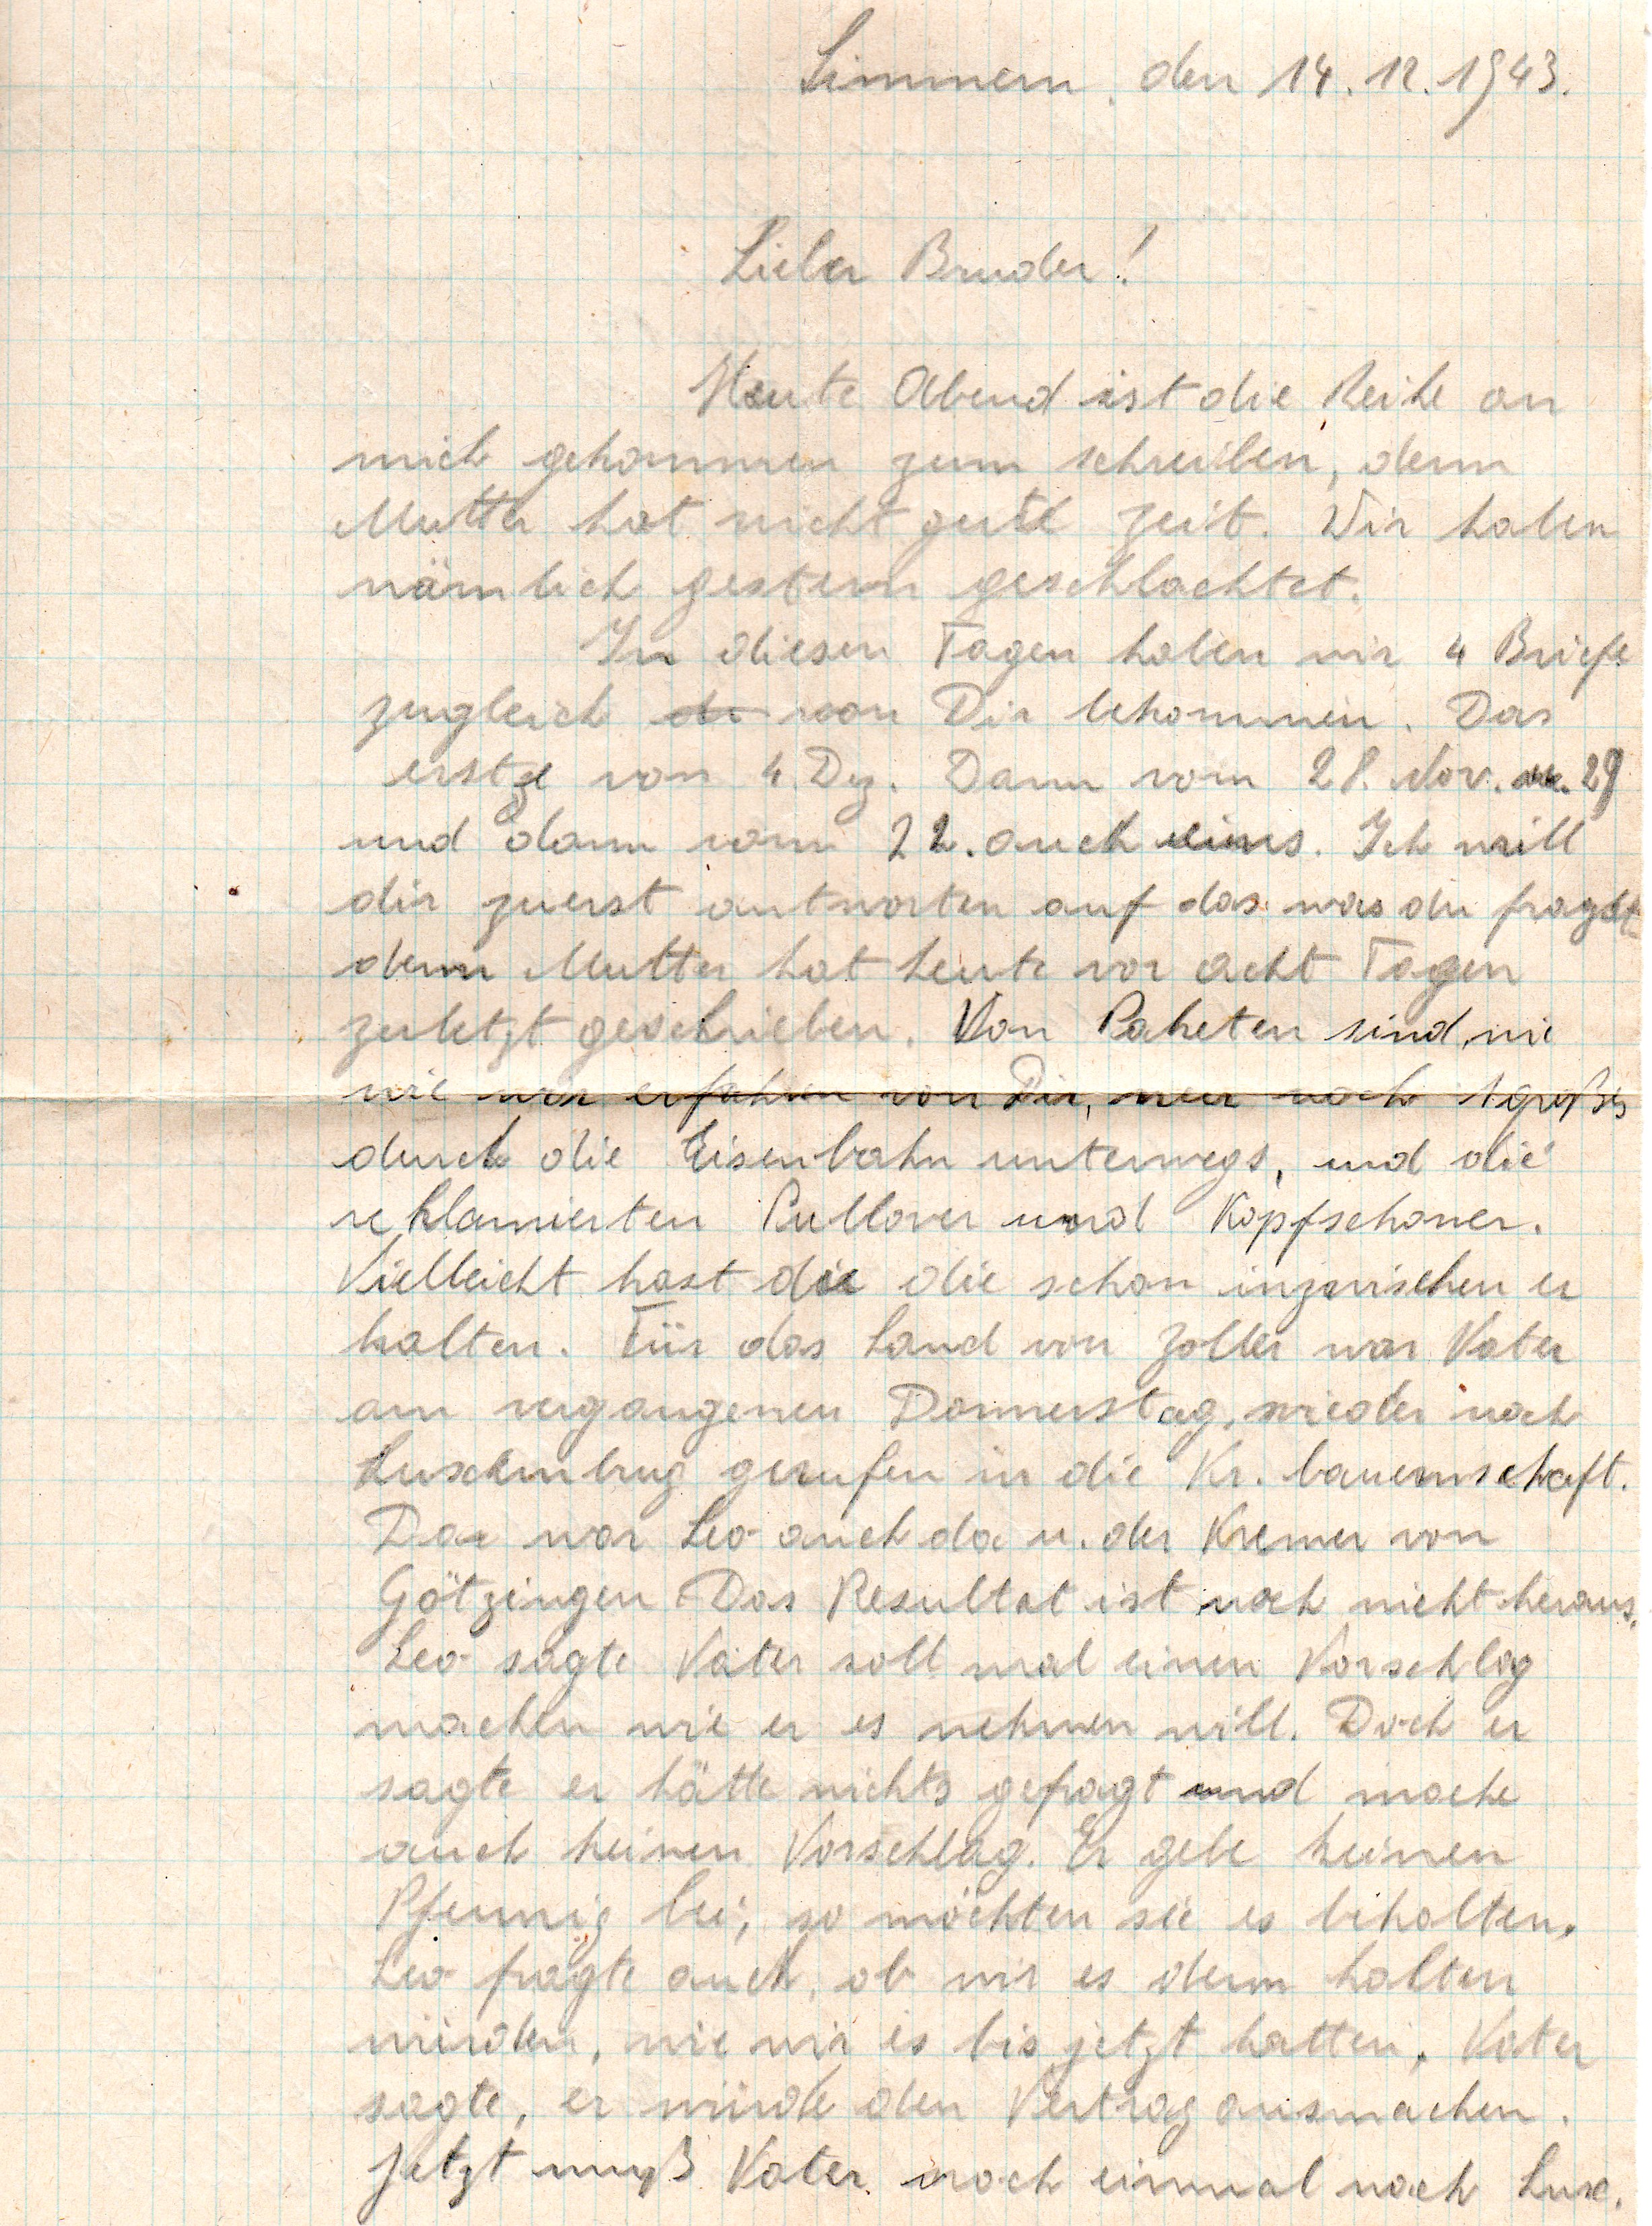 Simmern, den 14.12.1943.
Lieber Bruder!
Heute Abend ist die Reihe an
mich gekommen zum schreiben, denn
Mutter hat nicht gute Zeit. Wir haben
nämlich gestern geschlachtet.
In diesen Tagen haben wir 4 Briefe
zugleich von Dir bekommen. Das
erste von 4. Dez. Dann vom 28. Nov. 29
und dann vom 22. auch eins. Ich will
dir zuerst antworten auf das was du fragst
denn Mutter hat heute vor acht Tagen
zuletzt geschrieben. Von Paketen sind, wie
wie wir erfahren von Dir, nur noch 1 großes
durch die Eisenbahn unterwegs, und die
reklamierten Pullover und Kopfschoner.
Vielleicht hast du die schon inzwischen er
halten. Für das Land von Zoller war Vater
am vergangenen Donnerstag, wieder nach
Luxemburg gerufen in die Kr. bauernschaft.
Da war Leo auch da u. der Kremer von
Götzingen. Das Resultat ist noch nicht heraus.
Leo sagte Vater soll mal einen Vorschlag
machen wie er es nehmen will. Doch er
sagte er hätte nichts gefragt und mache
auch keinen Vorschlag. Er gebe keinen
Pfennig bei, so möchten sie es behalten.
Leo fragte auch, ob wir es denn halten
würden, wie wir es bis jetzt hatten. Vater
sagte, er würde den Vertrag ausmachen.
Jetzt muß Vater noch einmal nach Lux.